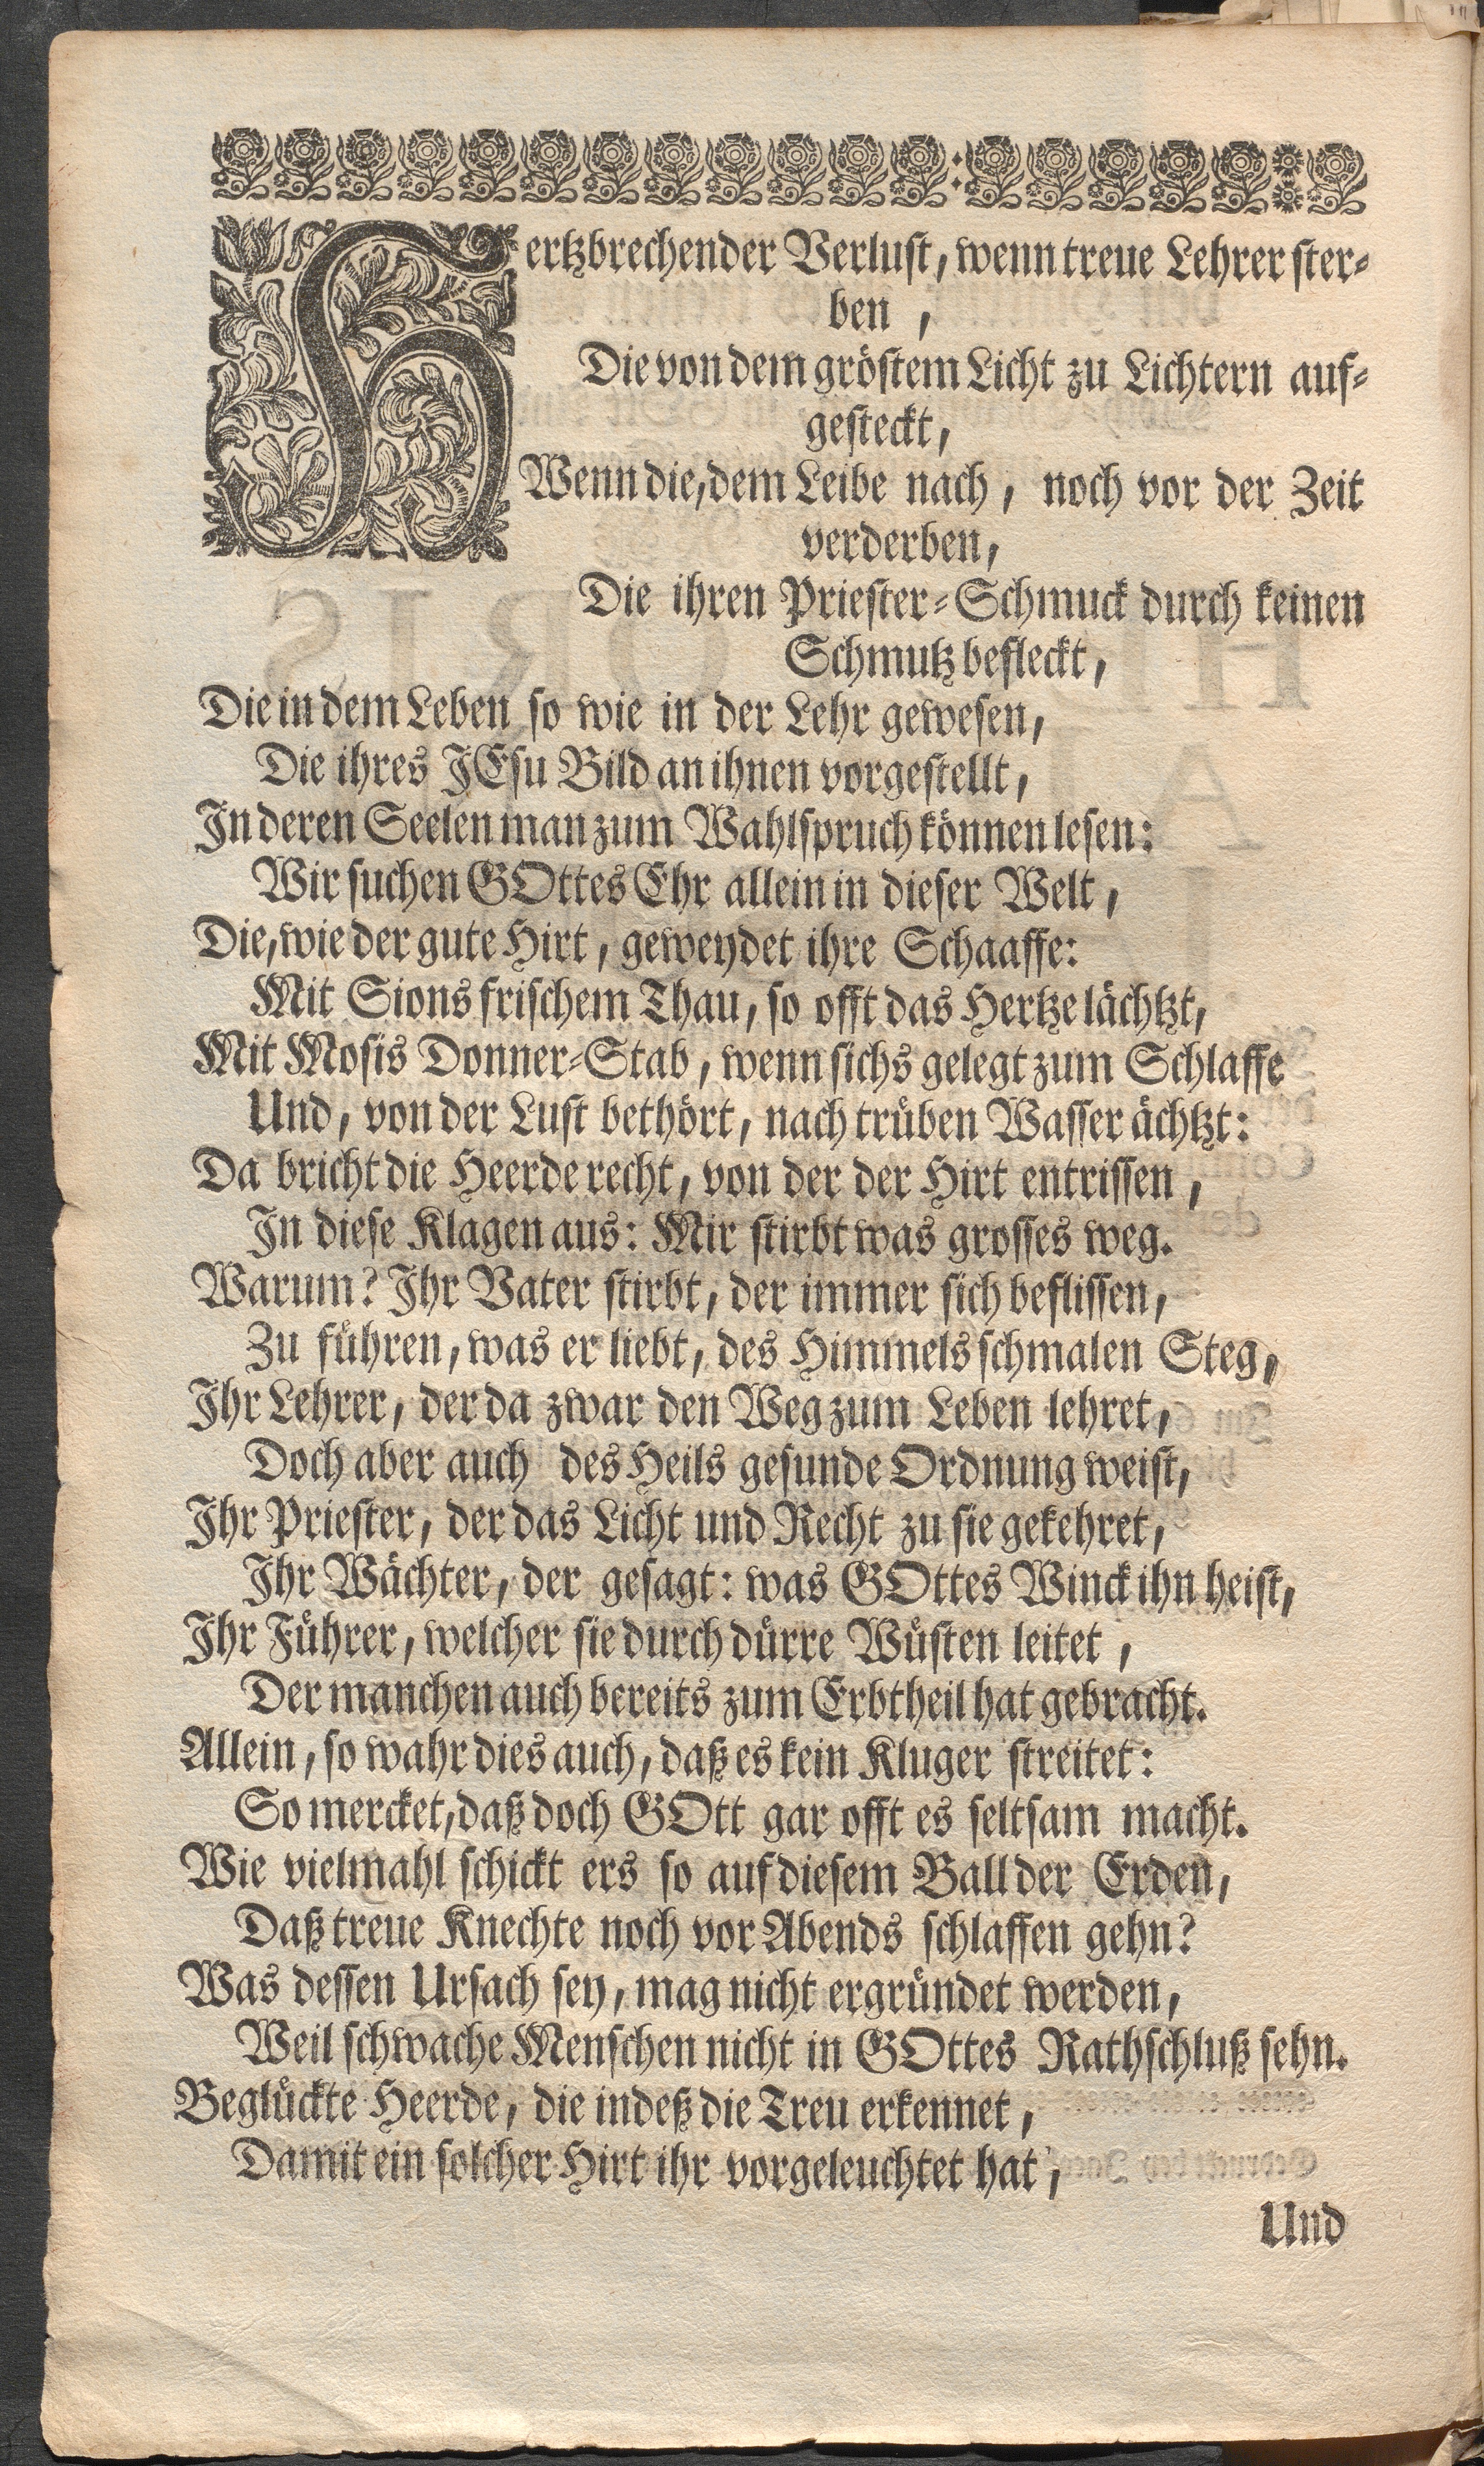 Hertzbrechender Verlust, wenn treue Lehrer ster-
ben,
Die von dem gröstem Licht zu Lichtern auf-
gesteckt,
Wenn die, dem Leibe nach, noch vor der Zeit
verderben,
Die ihren Priester-Schmuck durch keinen
Schmutz befleckt,
Die in dem Leben so wie in der Lehr gewesen,
Die ihres JEsu Bild an ihnen vorgestellt,
In deren Seelen man zum Wahlspruch können lesen:
Wir suchen GOttes Ehr allein in dieser Welt,
Die, wie der gute Hirt, geweydet ihre Schaaffe:
Mit Sions frischem Thau, so offt das Hertze lächtzt,
Mit Mosis Donner-Stab, wenn sichs gelegt zum Schlaffe
Und, von der Lust bethört, nach trüben Wasser ächtzt:
Da bricht die Heerde recht, von der der Hirt entrissen,
In diese Klagen aus: Mir stirbt was grosses weg.
Warum? Ihr Vater stirbt, der immer sich beflissen,
Zu führen, was er liebt, des Himmels schmalen Steg,
Ihr Lehrer, der da zwar den Weg zum Leben lehret,
Doch aber auch des Heils gesunde Ordnung weist,
Ihr Priester, der das Licht und Recht zu sie gekehret,
Ihr Wächter, der gesagt: was GOttes Winck ihn heist,
Ihr Führer, welcher sie durch dürre Wüsten leitet,
Der manchen auch bereits zum Erbtheil hat gebracht.
Allein, so wahr dies auch, daß es kein Kluger streitet:
So mercket, daß doch GOtt gar offt es seltsam macht.
Wie vielmahl schickt ers so auf diesem Ball der Erden,
Daß treue Knechte noch vor Abends schlaffen gehn?
Was dessen Ursach sey, mag nicht ergründet werden,
Weil schwache Menschen nicht in GOttes Rathschluß sehn.
Beglückte Heerde, die indeß die Treu erkennet,
Damit ein solcher Hirt ihr vorgeleuchtet hat,
Und